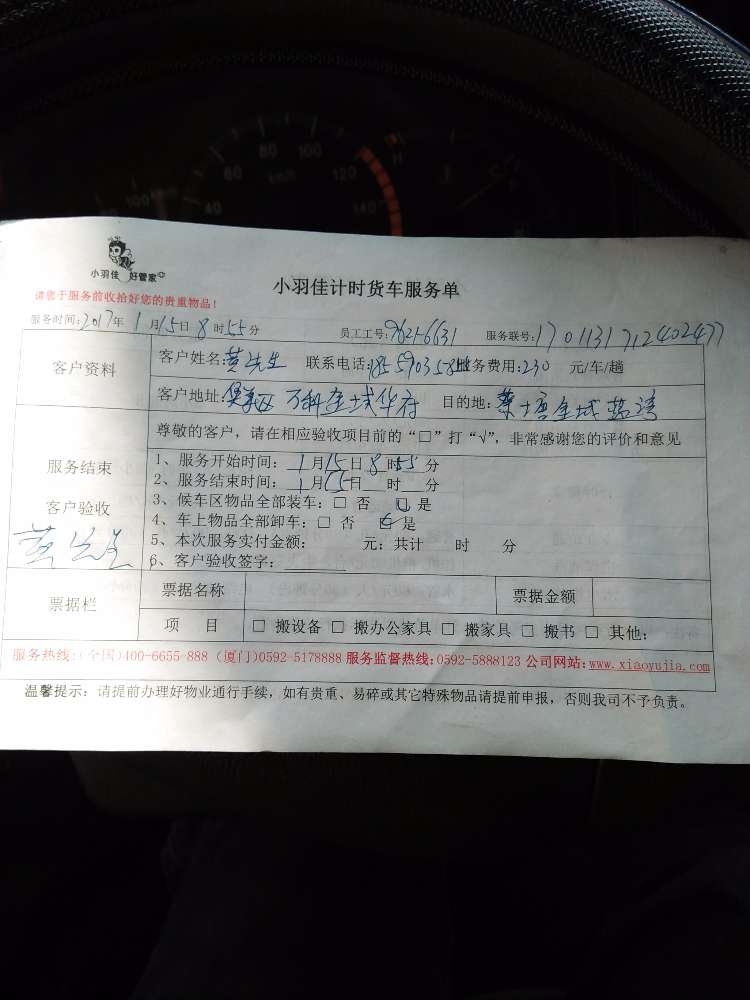 小羽佳 好管家
小羽佳计时货车服务单
请您于服务前收拾好您的贵重物品！
服务时间：2017年 1月15日 8时55分 员工工号： 服务联号：1701131712402477
客户资料
客户姓名：黄先生 联系电话： 服务费用：230 元/车/趟
客户地址： 万科金域华府 目的地： 金域蓝湾
尊敬的客户，请在相应验收项目前的“□”打“√”，非常感谢您的评价和意见
服务结束
客户验收
黄先生
1、服务开始时间：1月15日8时55分
2、服务结束时间：1月15日 时 分
3、候车区物品全部装车：□ 否 ☑ 是
4、车上物品全部卸车：□ 否 ☑ 是
5、本次服务实付金额： 元：共计 时 分
6、客户验收签字：
票据栏
票据名称 票据金额
项 目 □ 搬设备 □ 搬办公家具 □ 搬家具 □ 搬书 □ 其他：
服务热线：(全国)400-6655-888 (厦门)0592-5178888 服务监督热线：0592-5888123 公司网站：www.xiaoyujia.com
温馨提示：请提前办理好物业通行手续，如有贵重、易碎或其它特殊物品请提前申报，否则我司不予负责。
40
60
80
100
120
140
km/h